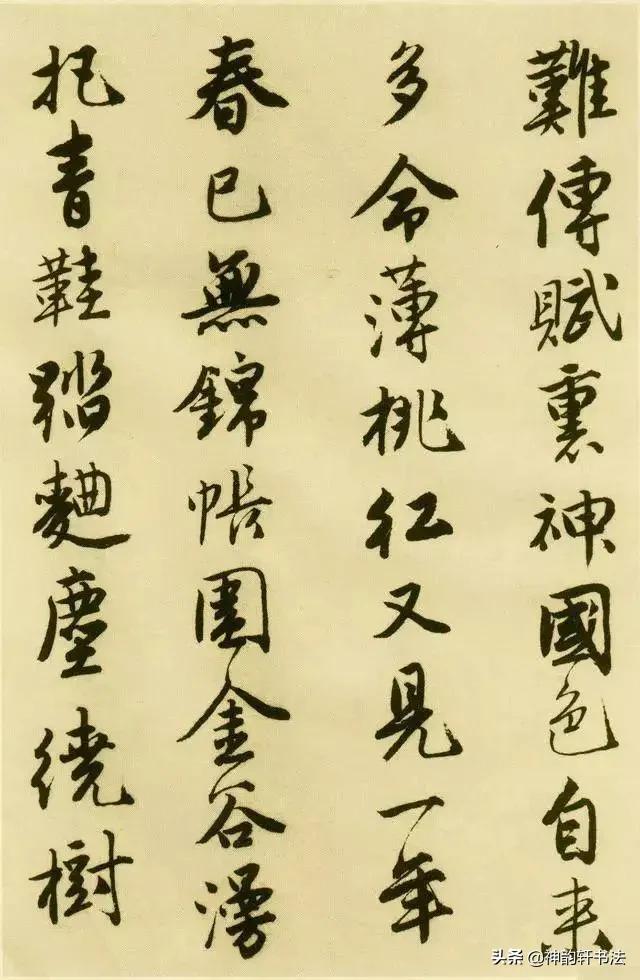 難傳賦裏神國色自来
多命薄桃红又見一年
春已無錦帳圍金谷漫
把青鞋踏麴塵繞樹
头条 @神韵轩书法